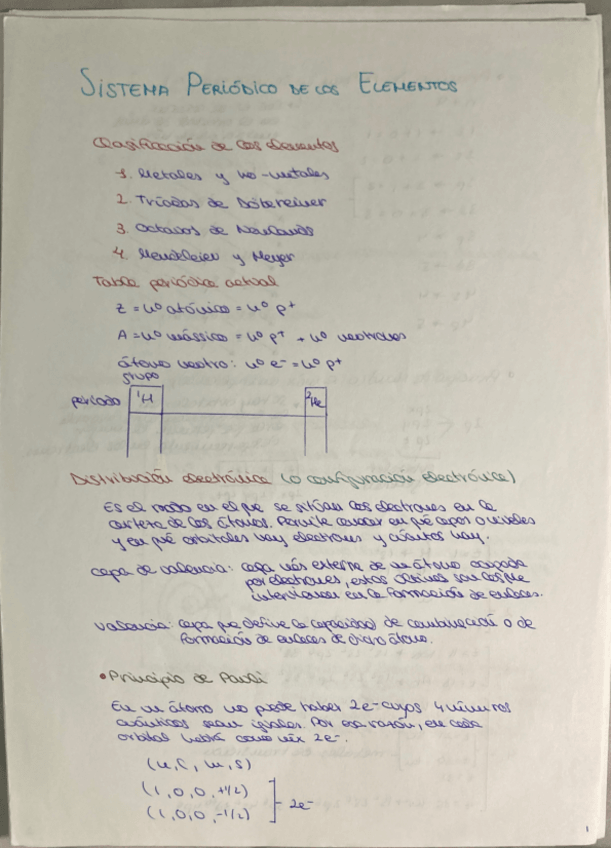 SISTEMA PERIÓDICO DE LOS ELEMENTOS
Clasificación de los elementos
1. Metales y no-metales
2. Tríadas de Döbereiner
3. Octavas de Newlands
4. Mendeleiev y Meyer
Tabla periódica actual
Z = nº atómico = nº p+
A = nº mássico = nº p+ + nº neutrones
átomo neutro: nº e- = nº p+
grupo
periodo 1H 2He
Distribución electrónica (o configuración electrónica)
Es el modo en el que se sitúan los electrones en la
corteza de los átomos. Permite conocer en qué capas o niveles
y en qué orbitales hay electrones y cuántos hay.
capa de valencia: capa más externa de un átomo ocupada
por electrones, estos últimos son los que
intervienen en la formación de enlaces.
valencia: capa que define la capacidad de combinación o de
formación de enlaces de dicho átomo.
• Principio de Pauli
En un átomo no puede haber 2e- cuyos 4 números
cuánticos sean iguales. Por esa razón, en cada
orbital habrá como máx 2e-.
(n, l, m, s)
(1, 0, 0, +1/2)
(1, 0, 0, -1/2)
2e-
1